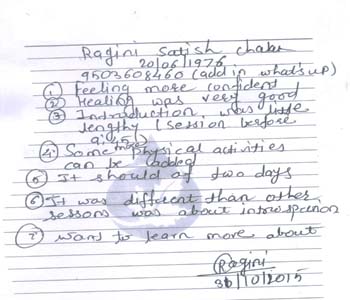 Ragini Satish
20/06/1976
9503608460 (add in what's up)
① Feeling more confident
② Healing was very good
③ Introduction was little
lengthy (session before
④ Some physical activities
can be added
⑤ It should of two days
⑥ It was different than other
sessons was about introspection
⑦ wants to learn more about
Ragini
30/10/2015